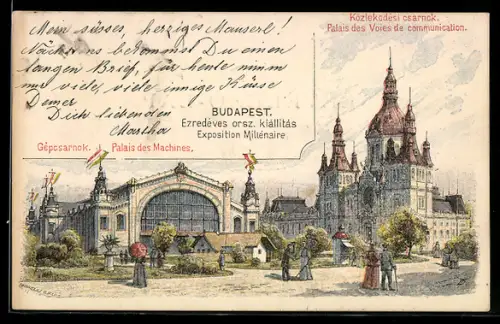 Mein süsses, herziges Mauserl!
Nächstens bekommst Du einen
langen Brief, für heute nimm
nur viele, viele innige Küsse
Deiner
Dich liebenden
Martha
Közlekedési csarnok.
Palais des Voies de communication.
BUDAPEST.
Ezredéves orsz. kiállitás
Exposition Millénaire.
Gépcsarnok. Palais des Machines.